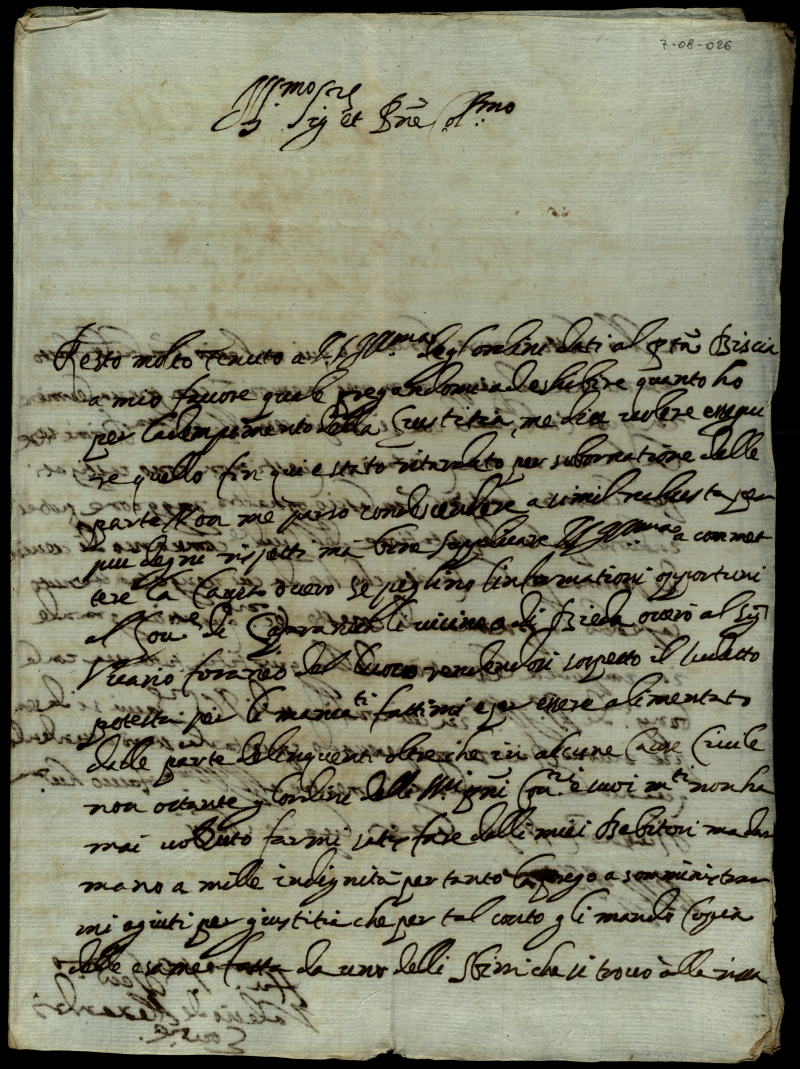 7-08-026
Ill.mo Sre
Sig et Pne Col.mo
Resto molto tenuto a V.S. Ill.ma degl'ordini dati al Biscia
a mio favore quale pregandomi ad eshibire quanto ho
per l'adempimento della Giustitia, me dice volere essequi
re quello fin qui è stato ritardato per subornatione delle
parte Non me parso condiscendere a simil richiesta per
piu degni rispetti ma bene supplicare V.S. Ill.ma a commet
tere la Causa overo se piglino l'informationi opportuni
al Gov.re di vicino a di Bieda overo al Sig.
Vicario foraneo del luoco rendendosi sospetto il sudetto
potestà per li manca.ti fattimi e per essere alimentato
dalle parte delinquenti oltre che in alcune Cause Civile
non ostante gl'ordini delli e suoi m.ti non ha
mai voluto farmi satisfare dalli miei Debitori ma
mano a mille indignità per tanto la prego a somministrar
mi agiuti per giustitia che per tal conto gli mando Coppia
delle esame fatta da uno delli Sbirri che si trovò alla rissa